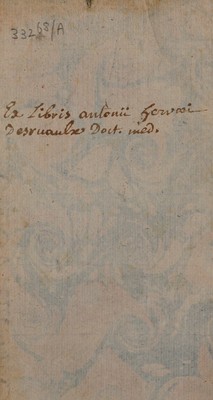 33268/A
Ex Libris antonii hervoei
Desruaulx Doct. med.